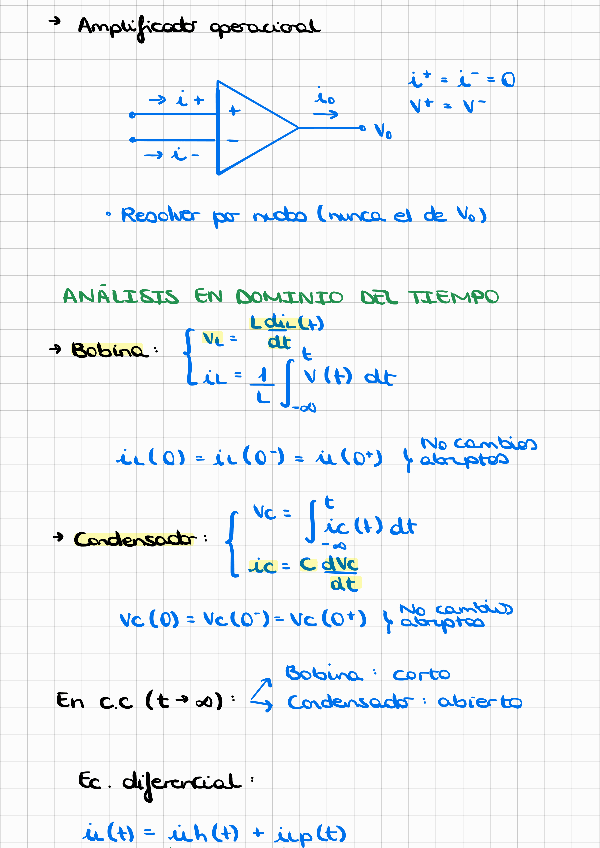 → Amplificado operacional
i⁺ = i⁻ = 0
→ i+
+
i₀
→
V⁺ = V⁻
V₀
→ i-
-
• Resolver por nudos (nunca el de V₀)
ANÁLISIS EN DOMINIO DEL TIEMPO
→ Bobina: { V_L = L di_L(t)/dt
i_L = 1/L ∫_{-∞}^{t} V(t) dt
i_L(0) = i_L(0⁻) = i_L(0⁺) } No cambios abruptos
→ Condensador: { Vc = ∫_{-∞}^{t} ic(t) dt
ic = C dVc/dt
Vc(0) = Vc(0⁻) = Vc(0⁺) } No cambios abruptos
Bobina: corto
En c.c (t → ∞):
Condensador: abierto
Ec. diferencial:
i_L(t) = i_Lh(t) + i_Lp(t)